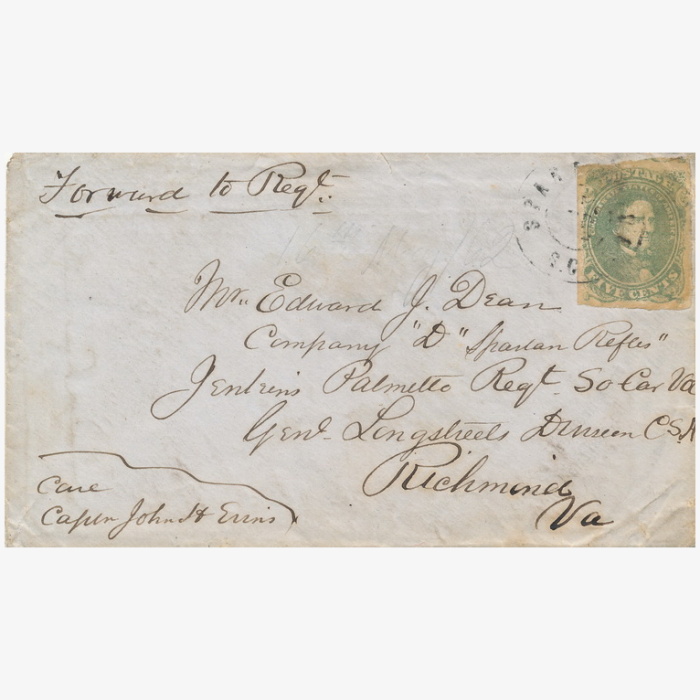 Forward to Regt.
POSTAGE
S.C.
FIVE CENTS
Mr. Edward J. Dean
Company "D" Spartan Rifles"
Jenkins Palmetto Regt. So Car Va
Genl. Longstreets Division C.S.A
Richmond
Va
Care
Captn John H Evins